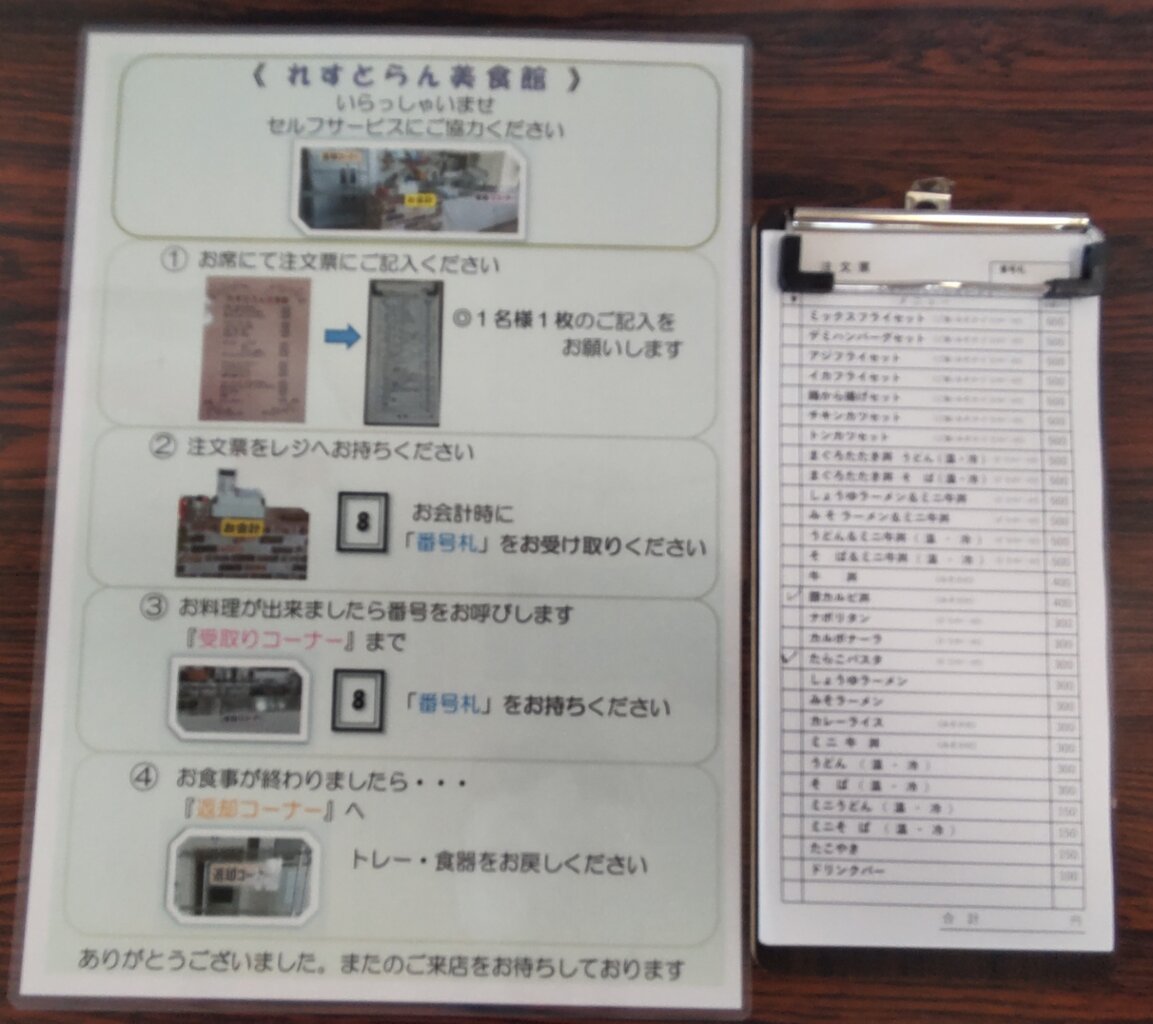 《 れすとらん美食館 》
いらっしゃいませ
セルフサービスにご協力ください
お会計
① お席にて注文票にご記入ください
◎1名様1枚のご記入を
お願いします
② 注文票をレジへお持ちください
お会計
8
お会計時に
「番号札」をお受け取りください
③ お料理が出来ましたら番号をお呼びします
『受取りコーナー』まで
8
「番号札」をお持ちください
④ お食事が終わりましたら・・・
『返却コーナー』へ
返却コー
トレー・食器をお戻しください
ありがとうございました。またのご来店をお待ちしております
注文票 番号札
メニュー
ミックスフライセット 500
デミハンバーグセット 500
アジフライセット 500
イカフライセット 500
鶏から揚げセット 500
チキンカツセット 500
トンカツセット 500
まぐろたたき丼 うどん(温・冷) 500
まぐろたたき丼 そ ば(温・冷) 500
しょうゆラーメン&ミニ牛丼 500
みそラーメン&ミニ牛丼 500
うどん&ミニ牛丼(温・冷) 500
そ ば&ミニ牛丼(温・冷) 500
牛 丼 400
カルビ丼 400
ナポリタン 300
カルボナーラ 300
たらこパスタ 300
しょうゆラーメン 300
みそラーメン 300
カレーライス 300
ミニ牛丼 300
うどん(温・冷) 300
そ ば(温・冷) 300
ミニうどん(温・冷) 150
ミニそ ば(温・冷) 150
たこやき 150
ドリンクバー 100
合計 円